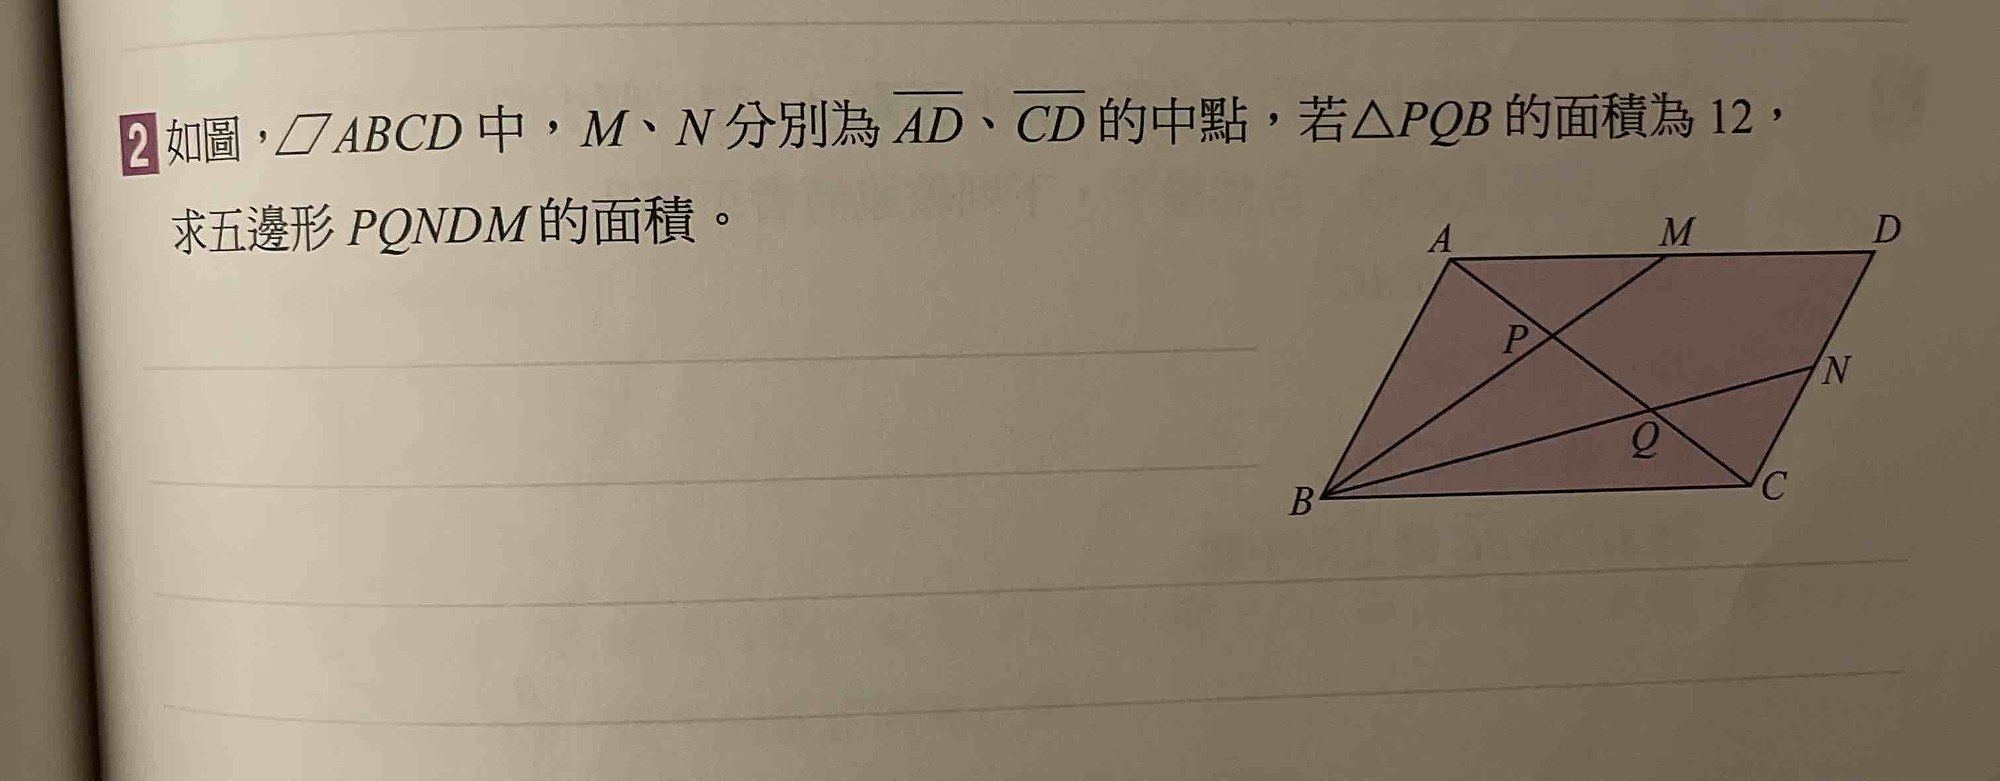 2 如圖，▱ABCD 中，M、N 分別為 A̅D̅、C̅D̅ 的中點，若△PQB 的面積為 12，
求五邊形 PQNDM 的面積。
A M D
P
N
Q
B C